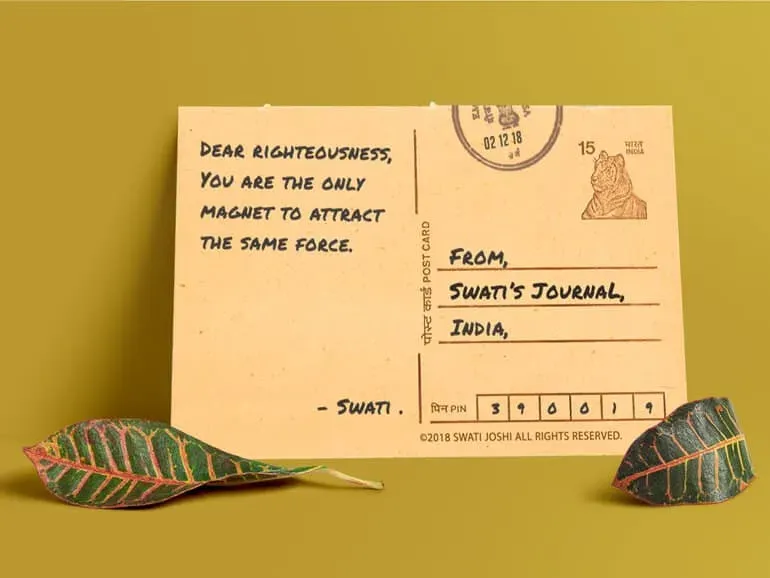 DEAR RIGHTEOUSNESS,
YOU ARE THE ONLY
MAGNET TO ATTRACT
THE SAME FORCE.
- SWATI .
पोस्ट कार्ड POST CARD
02 12 18
15 भारत
INDIA
FROM,
SWATI'S JOURNAL,
INDIA,
पिन PIN 390019
©2018 SWATI JOSHI ALL RIGHTS RESERVED.